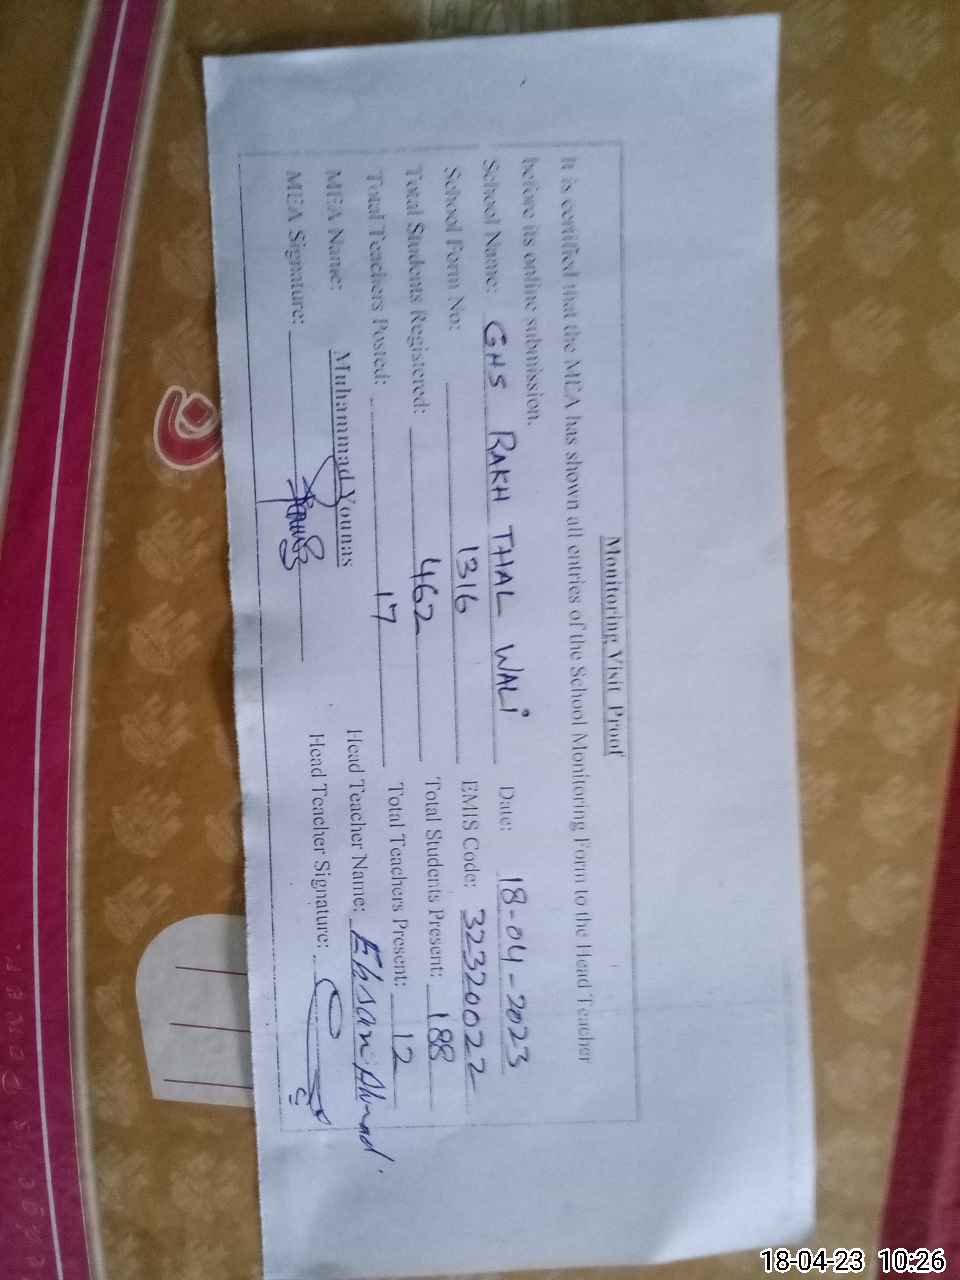 Monitoring Visit Proof
It is certified that the MEA has shown all entries of the School Monitoring Form to the Head Teacher
before its online submission.
School Name: GHS RAKH THAL WALI Date: 18-04-2023
School Form No: 1316 EMIS Code: 32320022
Total Students Registered: 462 Total Students Present: 188
Total Teachers Posted: 17 Total Teachers Present: 12
MEA Name: Muhammad Younas Head Teacher Name: Ehsan Ahmad
MEA Signature: Head Teacher Signature:
18-04-23 10:26